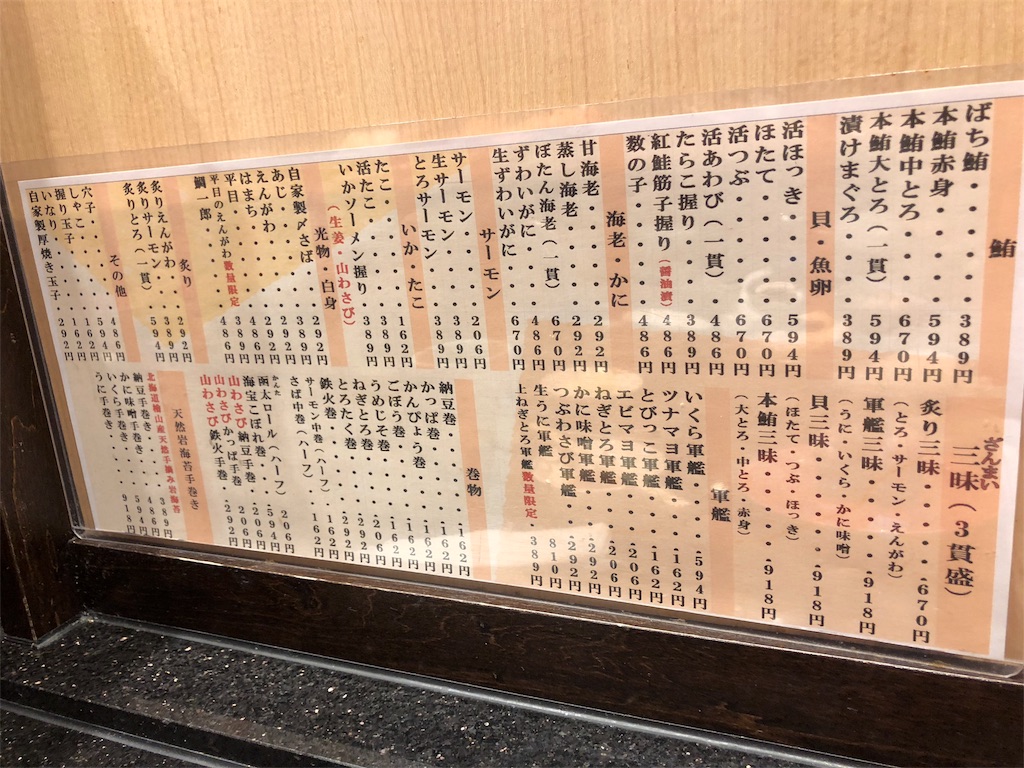 鮪
ばち鮪・・・・・389円
本鮪赤身・・・・594円
本鮪中とろ・・・670円
本鮪大とろ(一貫)・594円
漬けまぐろ・・・389円
貝・魚卵
活ほっき・・・・594円
ほたて・・・・・670円
活つぶ・・・・・670円
活あわび(一貫)・486円
たらこ握り・・・389円
紅鮭筋子握り(醤油漬)486円
数の子・・・・・486円
海老・かに
甘海老・・・・・292円
蒸し海老・・・・292円
ぼたん海老(一貫)670円
ずわいがに・・・486円
生ずわいがに・・670円
サーモン
サーモン・・・・206円
生サーモン・・・389円
とろサーモン・・389円
いか・たこ
たこ・・・・・・162円
活たこ・・・・・389円
いかソーメン握り・389円
(生姜・山わさび)
光物・白身
自家製〆さば・・292円
あじ・・・・・・389円
えんがわ・・・・292円
はまち・・・・・292円
平目・・・・・・486円
平目のえんがわ数量限定486円
鯛一郎・・・・・389円
炙り
炙りえんがわ・・292円
炙りサーモン・・389円
炙りとろ(一貫)・594円
その他
穴子・・・・・・486円
しゃこ・・・・・594円
握り玉子・・・・162円
いなり・・・・・162円
自家製厚焼き玉子・292円
三昧(3貫盛)
ざんまい
炙り三昧・・・・670円
(とろ・サーモン・えんがわ)
軍艦三昧・・・・918円
(うに・いくら・かに味噌)
貝三昧・・・・・918円
(ほたて・つぶ・ほっき)
本鮪三昧・・・・918円
(大とろ・中とろ・赤身)
軍艦
いくら軍艦・・・594円
ツナマヨ軍艦・・162円
とびっこ軍艦・・162円
エビマヨ軍艦・・206円
ねぎとろ軍艦・・292円
かに味噌軍艦・・206円
つぶわさび軍艦・292円
生うに軍艦・・・810円
上ねぎとろ軍艦数量限定389円
巻物
納豆巻・・・・・162円
かっぱ巻・・・・162円
かんぴょう巻・・162円
ごぼう巻・・・・162円
うめじそ巻・・・206円
ねぎとろ巻・・・292円
とろたく巻・・・292円
鉄火巻・・・・・292円
サーモン中巻(ハーフ)・162円
さば中巻(ハーフ)・・162円
かんた
函太ロール(ハーフ)・206円
海宝こぼれ巻・・・594円
山わさび納豆手巻・206円
山わさびかっぱ手巻・206円
山わさび鉄火手巻・292円
天然岩海苔手巻き
北海道檜山産天然手摘み岩海苔
納豆手巻き・・・389円
かに味噌手巻き・486円
いくら手巻き・・594円
うに手巻き・・・918円